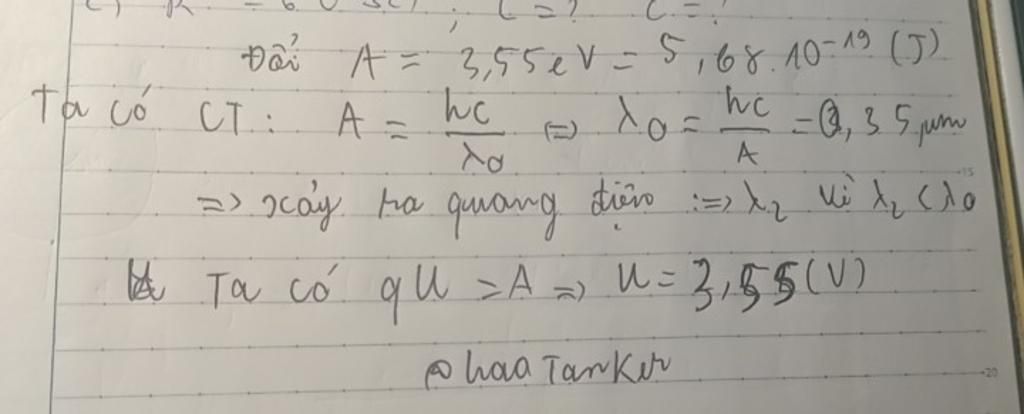 Đổi A = 3,55 eV = 5,68.10⁻¹⁹ (J)
Ta có CT: A = hc/λ₀ => λ₀ = hc/A = 0,35 μm
=> xảy ra quang điện :=> λ₂ vì λ₂ < λ₀
Ta có qU = A => U = 3,55 (V)